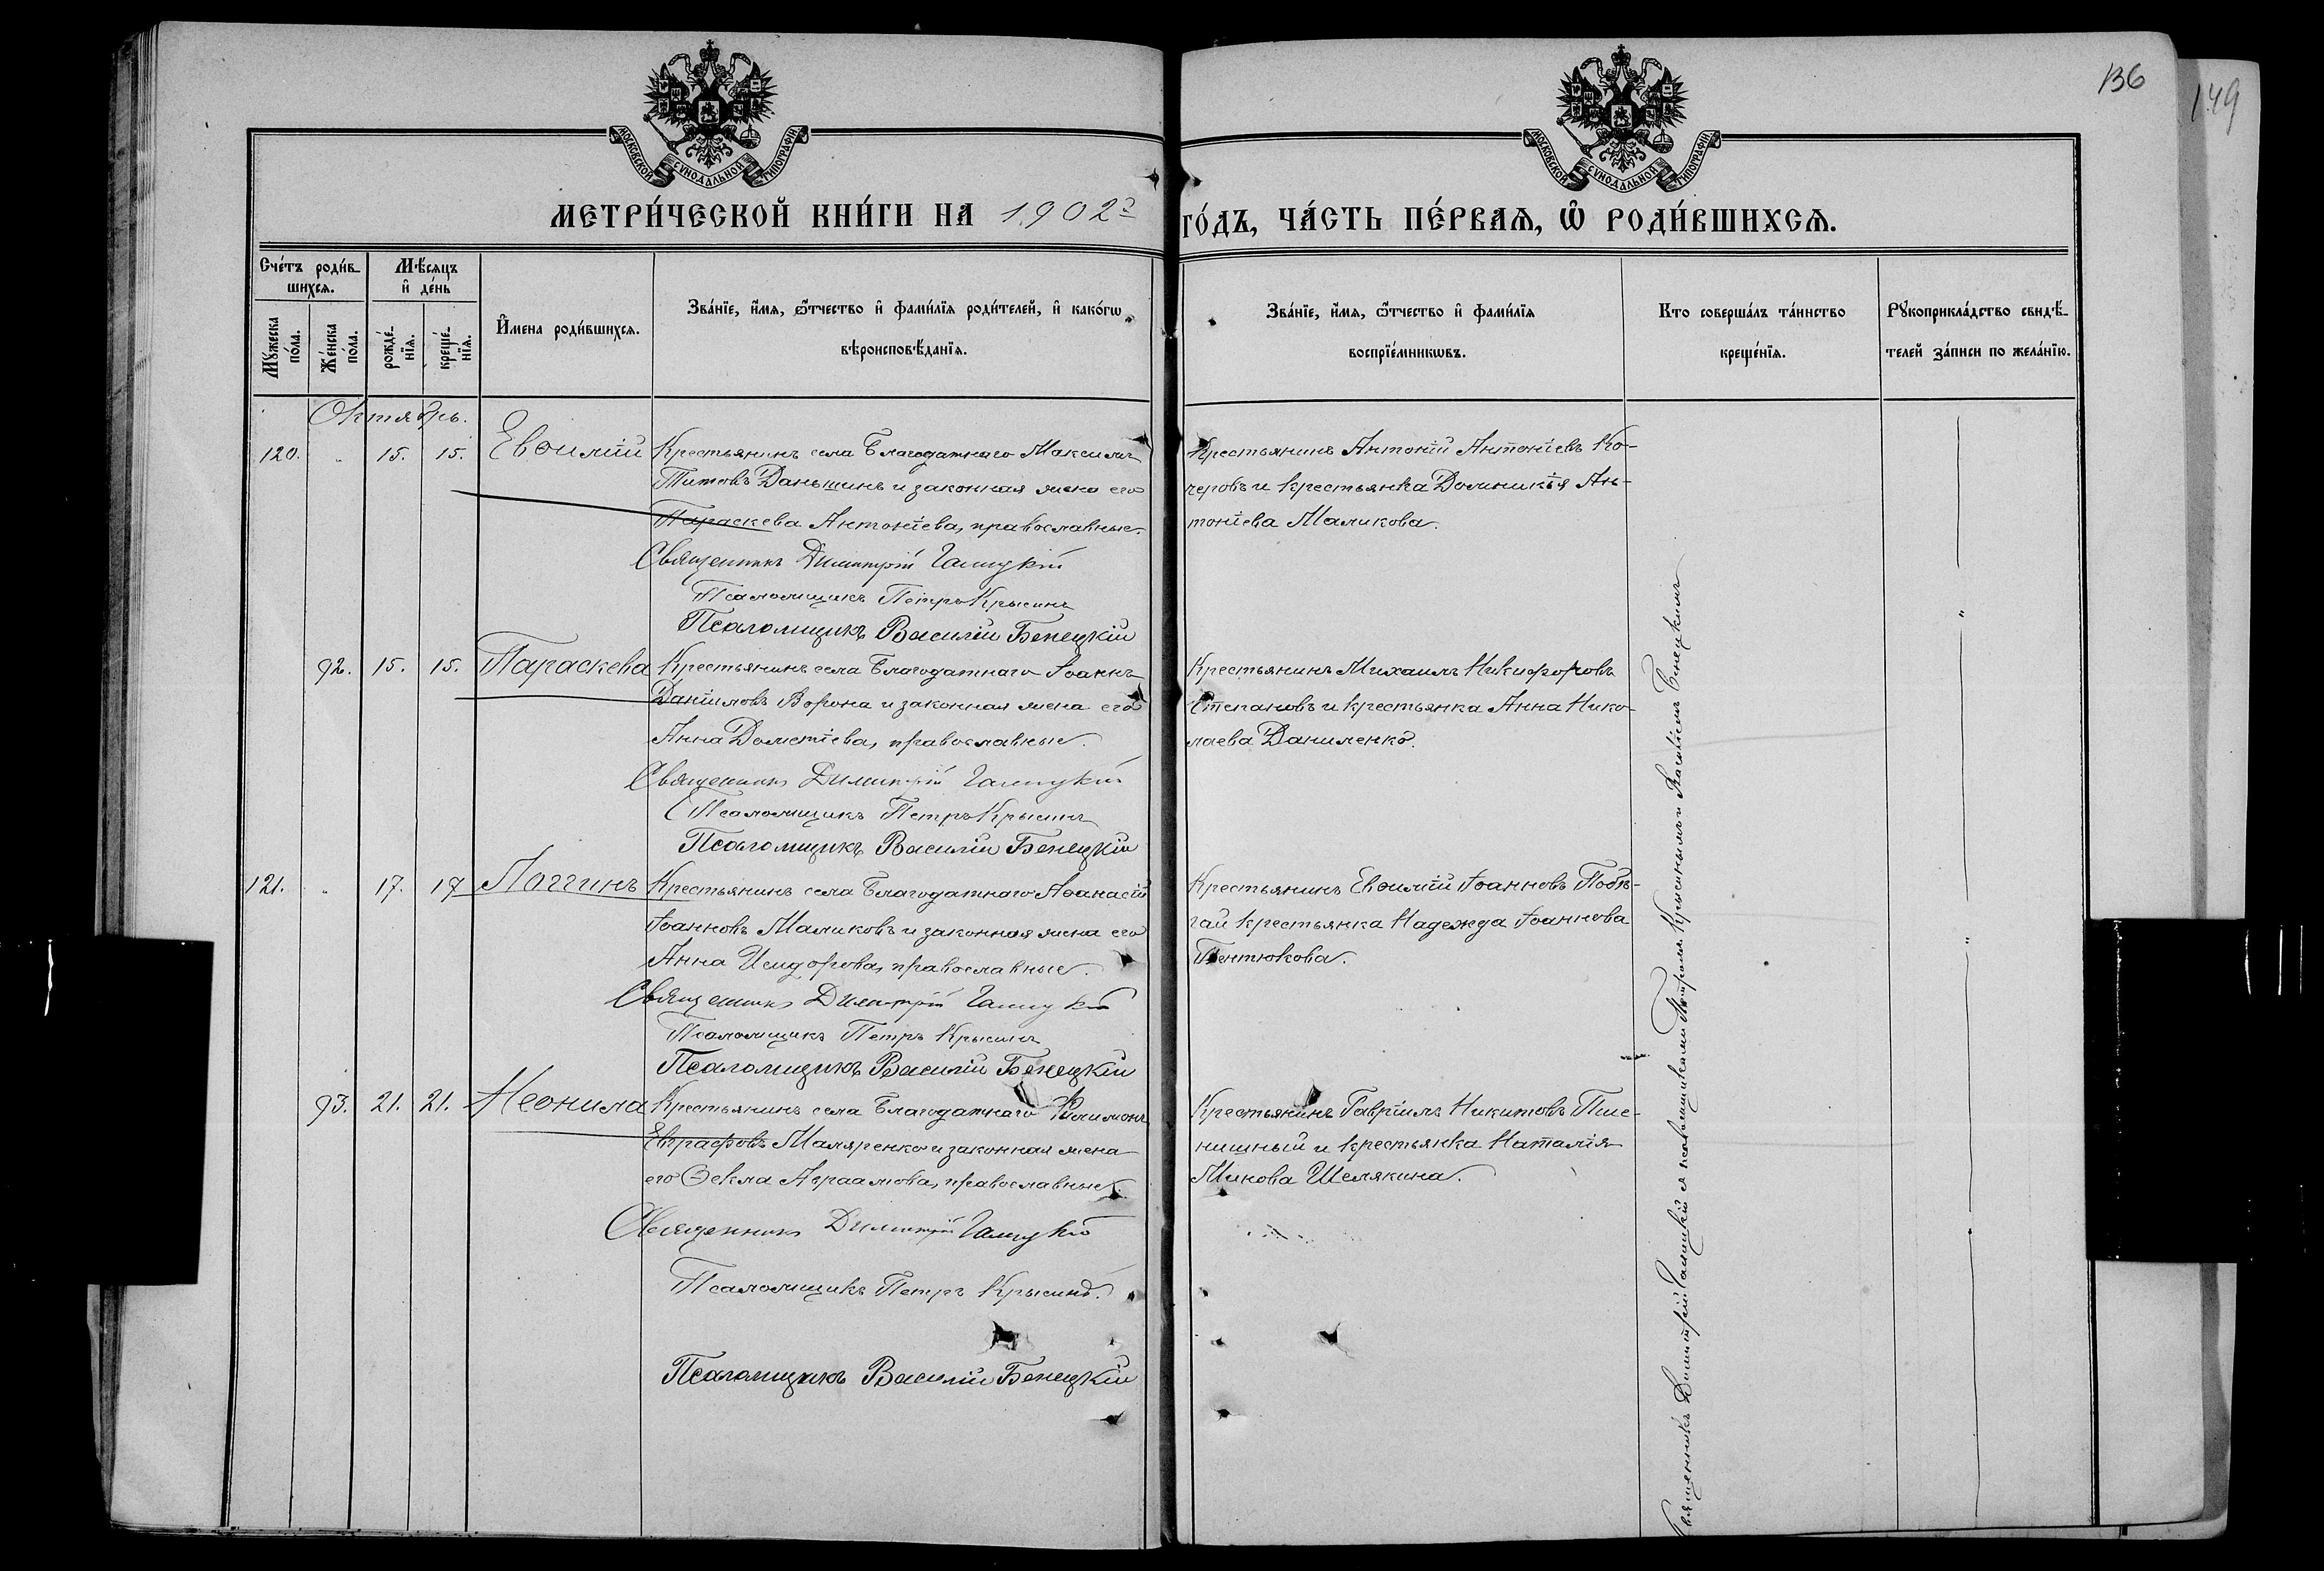 136
149
МОСКОВСКОЙ СѴНОДАЛЬНОЙ ТИПОГРАФІИ
МОСКОВСКОЙ СѴНОДАЛЬНОЙ ТИПОГРАФІИ
МЕТРИ́ЧЕСКОЙ КНИ́ГИ НА 1902й ГО́ДЪ, ЧА́СТЬ ПЕ́РВАѦ, Ѡ҆ РОДИ́ВШИХСѦ.
Сче́тъ роди́в-
шихсѧ.
Мꙋ́жеска
по́ла.
Же́нска
по́ла.
Мѣ́сѧцъ
и҆ де́нь
рожде́-
нїѧ.
креще́-
нїѧ.
И҆мена роди́вшихсѧ.
Зва́нїе, и҆́мѧ, ѻ҆́тчество и҆ фами́лїѧ роди́телей, и҆ како́гѡ
вѣроисповѣ́данїѧ.
Зва́нїе, и҆́мѧ, ѻ҆́тчество и҆ фами́лїѧ
воспрїе́мникѡвъ.
Кто соверша́лъ та́инство
креще́нїѧ.
Рꙋкоприкла́дство свидѣ́-
телей за́писи по жела́нїю.
Октябрь.
120. " 15. 15. Евѳимій Крестьянинъ села Благодатнаго Максимъ
Титовъ Даньшинъ и законная жена его
Параскева Антоніева, православные.
Священникъ Димитрій Галицкій
Псаломщикъ Петръ Крысинъ
Псаломщикъ Василій Бенецкій
Крестьянинъ Антоній Антоніевъ Ко-
черовъ и крестьянка Доминикія Ан-
тоніева Маликова.
92. 15. 15. Параскева Крестьянинъ села Благодатнаго Іоаннъ
Даніиловъ Ворона и законная жена его
Анна Дометіева, православные.
Священникъ Димитрій Галицкій
Псаломщикъ Петръ Крысинъ
Псаломщикъ Василій Бенецкій
Крестьянинъ Михаилъ Никифоровъ
Степановъ и крестьянка Анна Нико-
лаева Даниленко.
121. " 17. 17 Логгинъ Крестьянинъ села Благодатнаго Аѳанасій
Іоанновъ Маликовъ и законная жена его
Анна Исидорова, православные.
Священникъ Димитрій Галицкій
Псаломщикъ Петръ Крысинъ
Псаломщикъ Василій Бенецкій
Крестьянинъ Евѳимій Іоанновъ Побѣ-
гай крестьянка Надежда Іоаннова
Пентюхова.
93. 21. 21. Неонила Крестьянинъ села Благодатнаго Филимонъ
Евграфовъ Маляренко и законная жена
его Ѳекла Авраамова, православные.
Священникъ Димитрій Галицкій
Псаломщикъ Петръ Крысинъ.
Псаломщикъ Василій Бенецкій
Крестьянинъ Гавріилъ Никитовъ Пше-
нишный и крестьянка Наталія
Минова Шелякина.
Священникъ Димитрій Галицкій и псаломщиками Петромъ Крысинымъ и Василіемъ Бенецкимъ